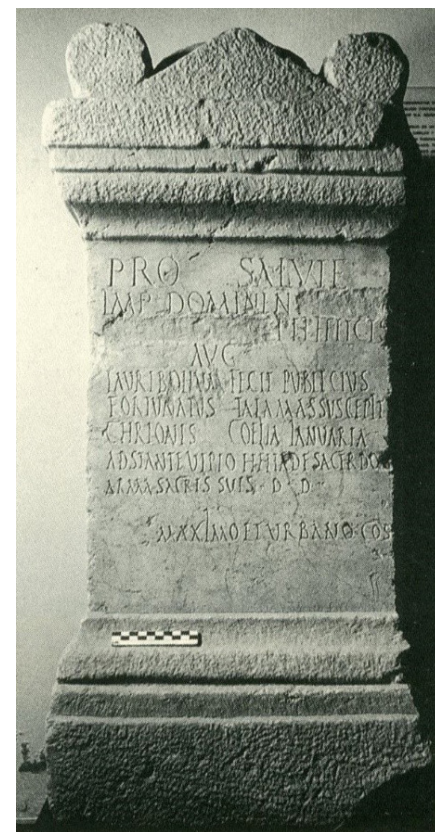 PRO SALVTE
IMP DOMINI N
PII FELICIS
AVG
TAVRIBOLIVM FECIT PVBLICIVS
FORTVNATVS THALAMAS SVSCEPIT
CHRIONIS COELIA IANVARIA
ADSTANTE VLPIO HELIADE SACERDO
ARMA SACRIS SVIS D D
MAXIMO ET VRBANO COS